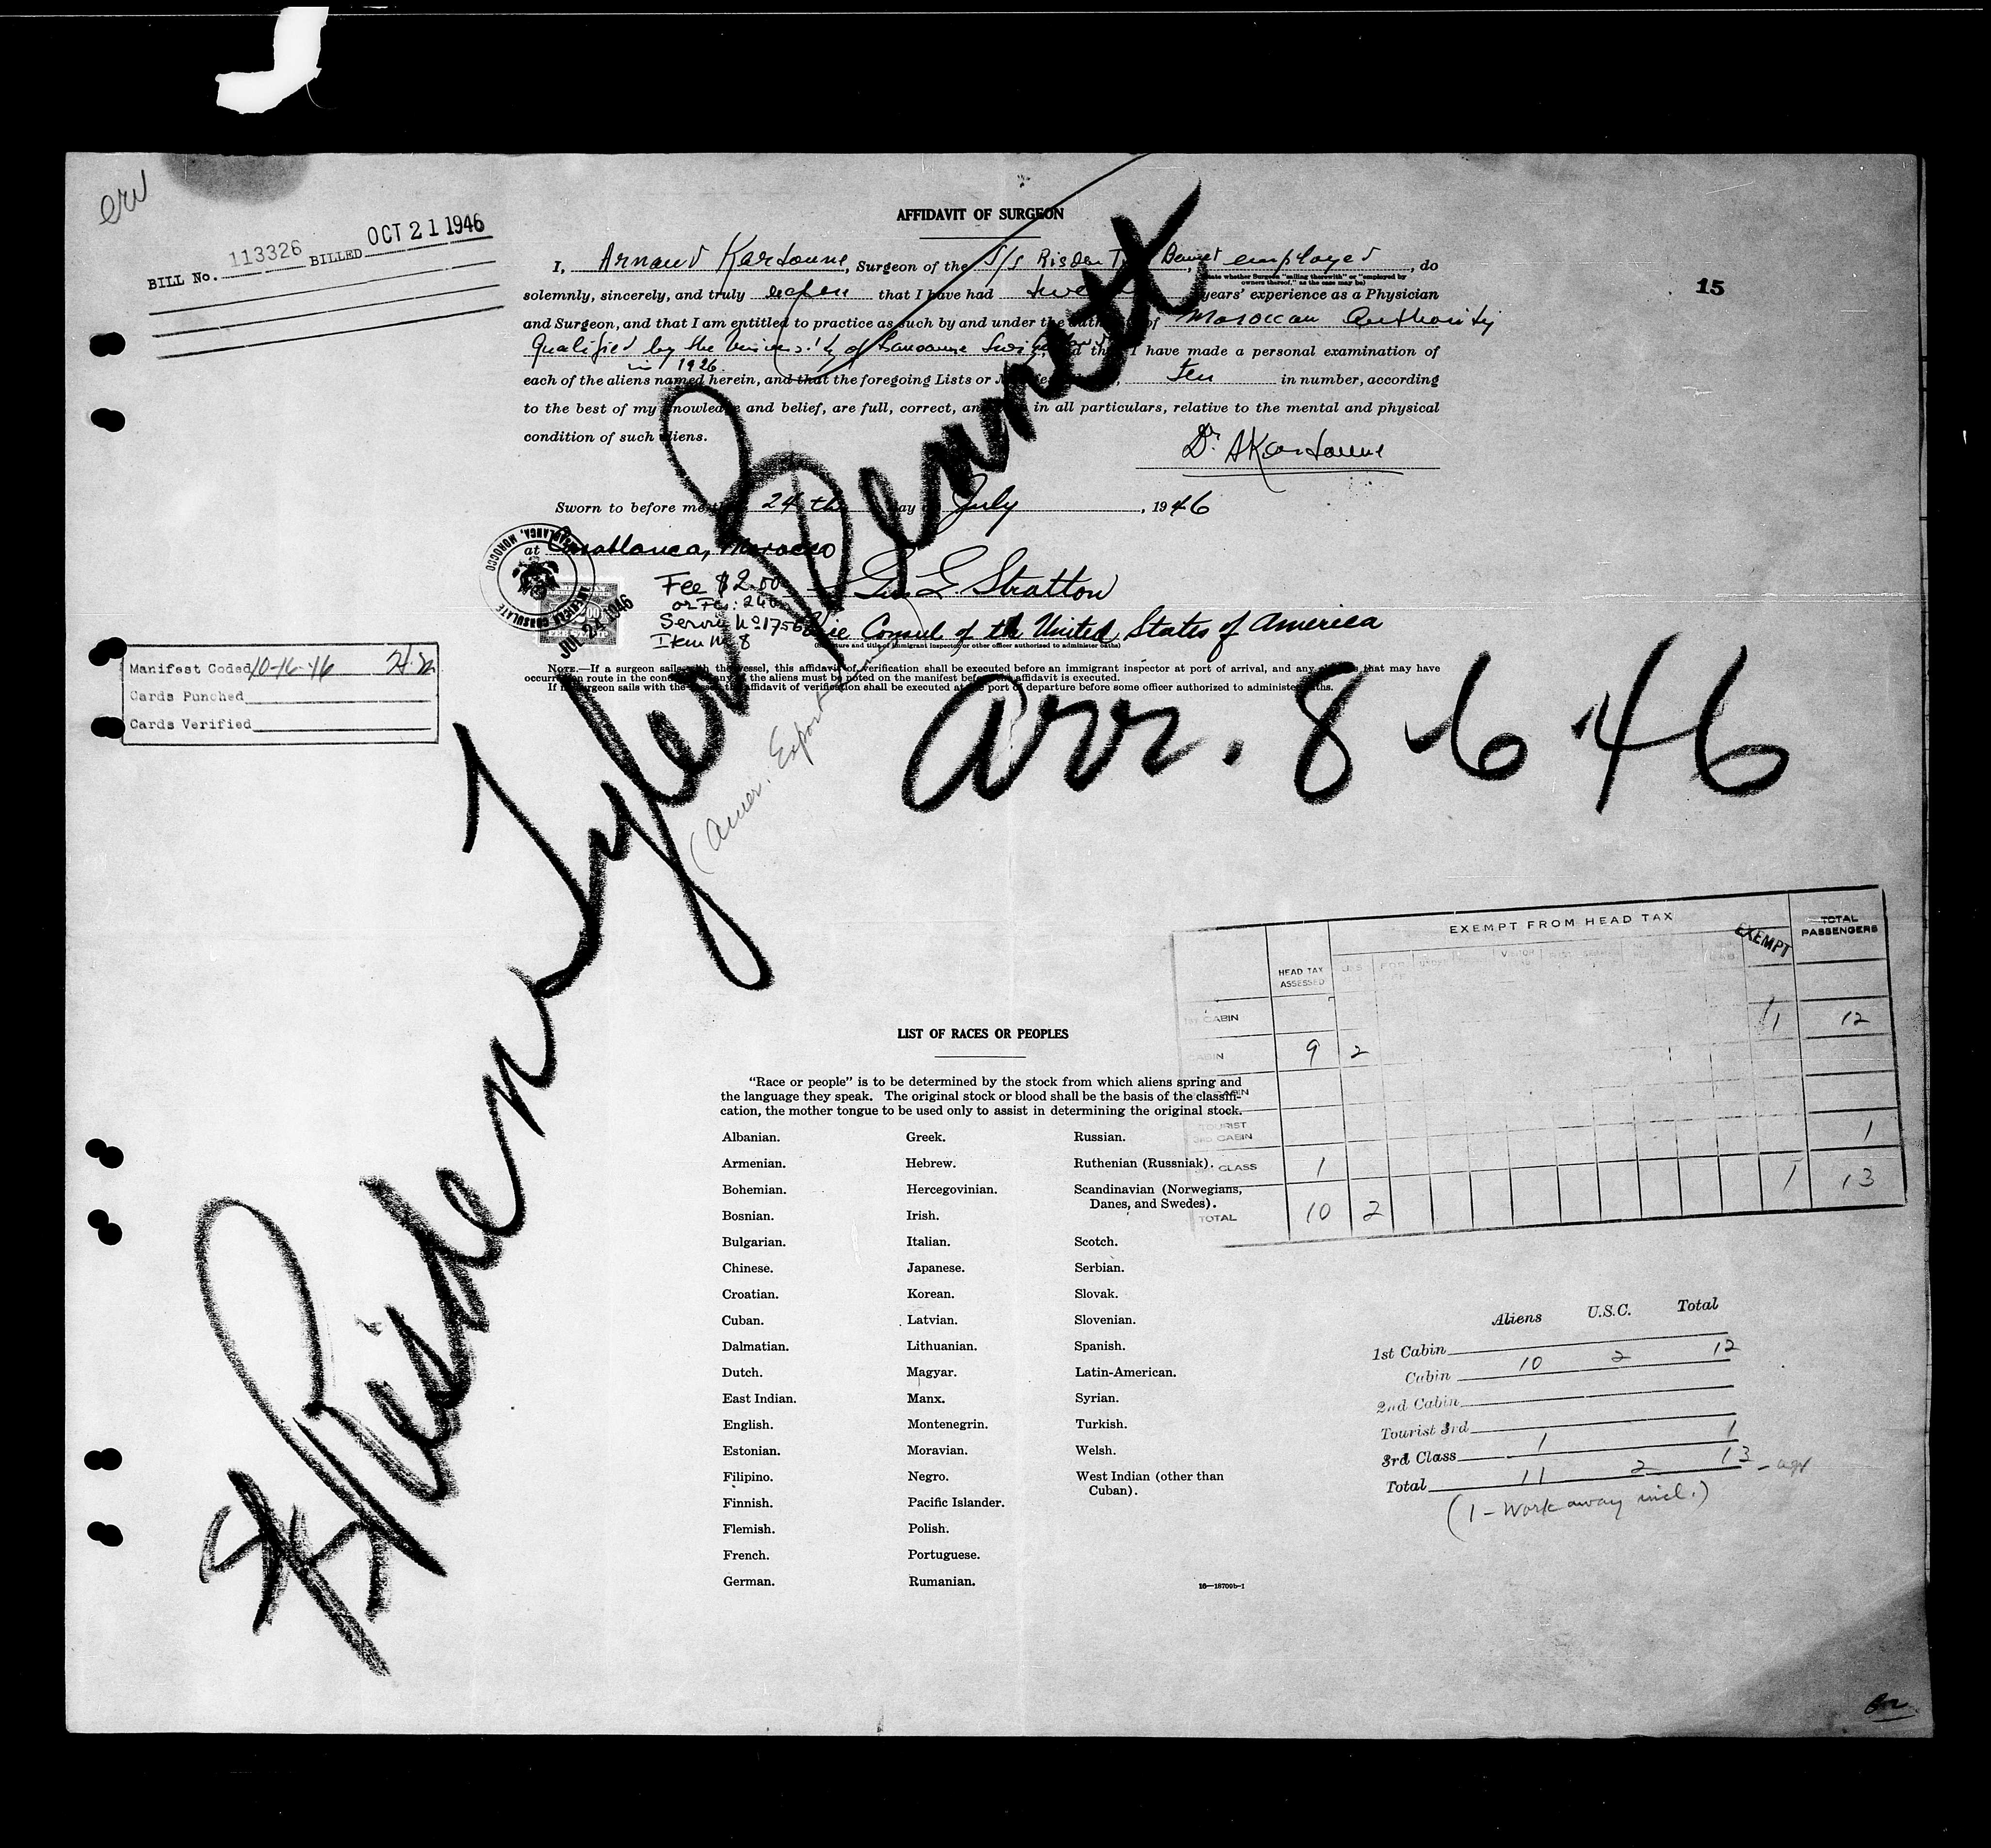 erv
BILL No. 113326 BILLED OCT 21 1946
AFFIDAVIT OF SURGEON
15
I, Arnaud Kardonne, Surgeon of the S/s Risden T. Bennet employed, do
(State whether Surgeon "sailing therewith" or "employed by
owners thereof," as the case may be)
solemnly, sincerely, and truly that I have had years' experience as a Physician
and Surgeon, and that I am entitled to practice as such by and under the auth of Moroccan Authority
Qualified by the University of Lausanne I have made a personal examination of
in 1926
each of the aliens named herein, and that the foregoing Lists or ten in number, according
to the best of my knowledge and belief, are full, correct, an in all particulars, relative to the mental and physical
condition of such aliens.
Dr AKardonne
Sworn to before me th 24th day o July, 1946
at Casablanca, Morocco
AMERICAN CONSULATE CASABLANCA, MOROCCO
JUL 24 1946
Fee $2.00
Geo L. Stratton
Service No 1756
Vice Consul of the United States of America
Item No 8
(Signature and title of immigrant inspector or other officer authorized to administer oaths)
NOTE.—If a surgeon sails with the vessel, this affidavit of verification shall be executed before an immigrant inspector at port of arrival, and any that may have
occurred en route in the con any of the aliens must be noted on the manifest before the affidavit is executed.
If surgeon sails with the affidavit of verification shall be executed at the port of departure before some officer authorized to administer oaths.
Manifest Coded 10-16-46
Cards Punched
Cards Verified
SS Risden Tyler Bennett
(Amer. Export)
arr. 8-6-46
EXEMPT FROM HEAD TAX
EXEMPT
TOTAL PASSENGERS
HEAD TAX ASSESSED
1st CABIN 11 12
CABIN 9 2
CABIN
TOURIST
3RD CABIN 1
CLASS 1 1 13
TOTAL 10 2
LIST OF RACES OR PEOPLES
"Race or people" is to be determined by the stock from which aliens spring and
the language they speak. The original stock or blood shall be the basis of the classifi-
cation, the mother tongue to be used only to assist in determining the original stock.
Albanian. Greek. Russian.
Armenian. Hebrew. Ruthenian (Russniak).
Bohemian. Hercegovinian. Scandinavian (Norwegians,
Danes, and Swedes).
Bosnian. Irish.
Bulgarian. Italian. Scotch.
Chinese. Japanese. Serbian.
Croatian. Korean. Slovak.
Cuban. Latvian. Slovenian.
Dalmatian. Lithuanian. Spanish.
Dutch. Magyar. Latin-American.
East Indian. Manx. Syrian.
English. Montenegrin. Turkish.
Estonian. Moravian. Welsh.
Filipino. Negro. West Indian (other than
Cuban).
Finnish. Pacific Islander.
Flemish. Polish.
French. Portuguese.
German. Rumanian.
16—18709b-1
Aliens U.S.C. Total
1st Cabin
Cabin 10 2 12
2nd Cabin
Tourist 3rd
3rd Class 1 1
Total 11 2 13
(1 - Work away incl.)